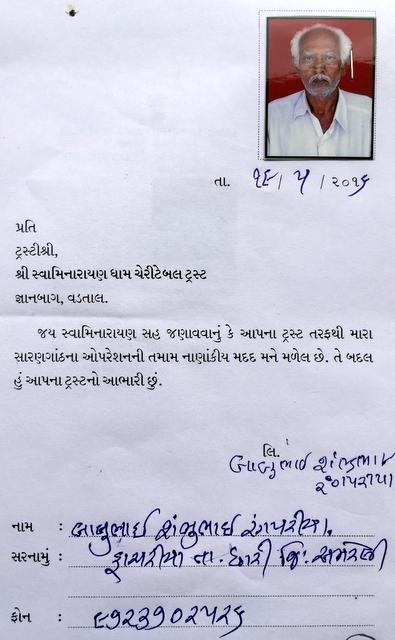 તા. ૧૬/ ૫ / ૨૦૧૬
પ્રતિ
ટ્રસ્ટીશ્રી,
શ્રી સ્વામિનારાયણ ધામ ચેરીટેબલ ટ્રસ્ટ
જ્ઞાનબાગ, વડતાલ.
જય સ્વામિનારાયણ સહ જણાવવાનું કે આપના ટ્રસ્ટ તરફથી મારા
સારણગાંઠના ઓપરેશનની તમામ નાણાંકીય મદદ મને મળેલ છે. તે બદલ
હું આપના ટ્રસ્ટનો આભારી છું.
લિ.
બાબુભાઈ શંભુભાઈ
રંગપરીયા
નામ : બાબુભાઈ શંભુભાઈ રંગપરીયા.
સરનામું : ફાચરીયા તા. ધારી જિ: અમરેલી
ફોન : ૯૭૨૩૧૦૨૫૨૬